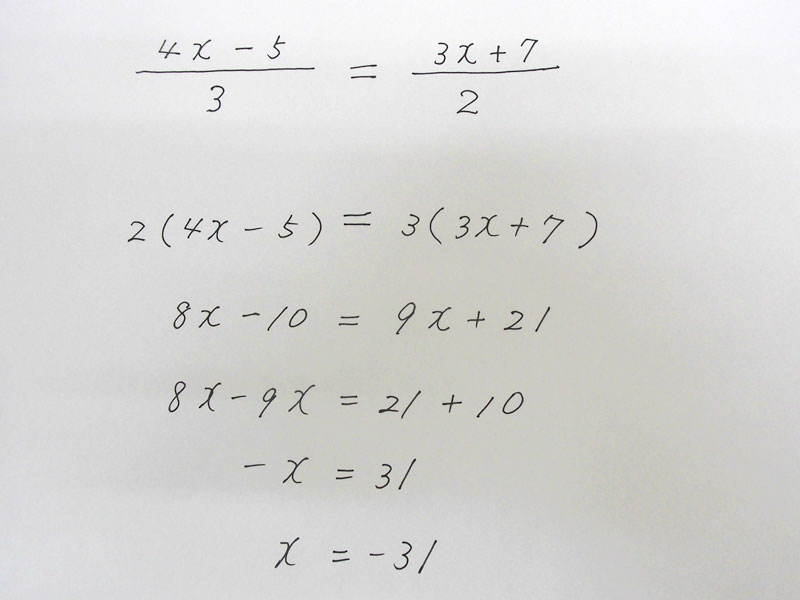 4x - 5 / 3 = 3x + 7 / 2
2(4x - 5) = 3(3x + 7)
8x - 10 = 9x + 21
8x - 9x = 21 + 10
- x = 31
x = -31